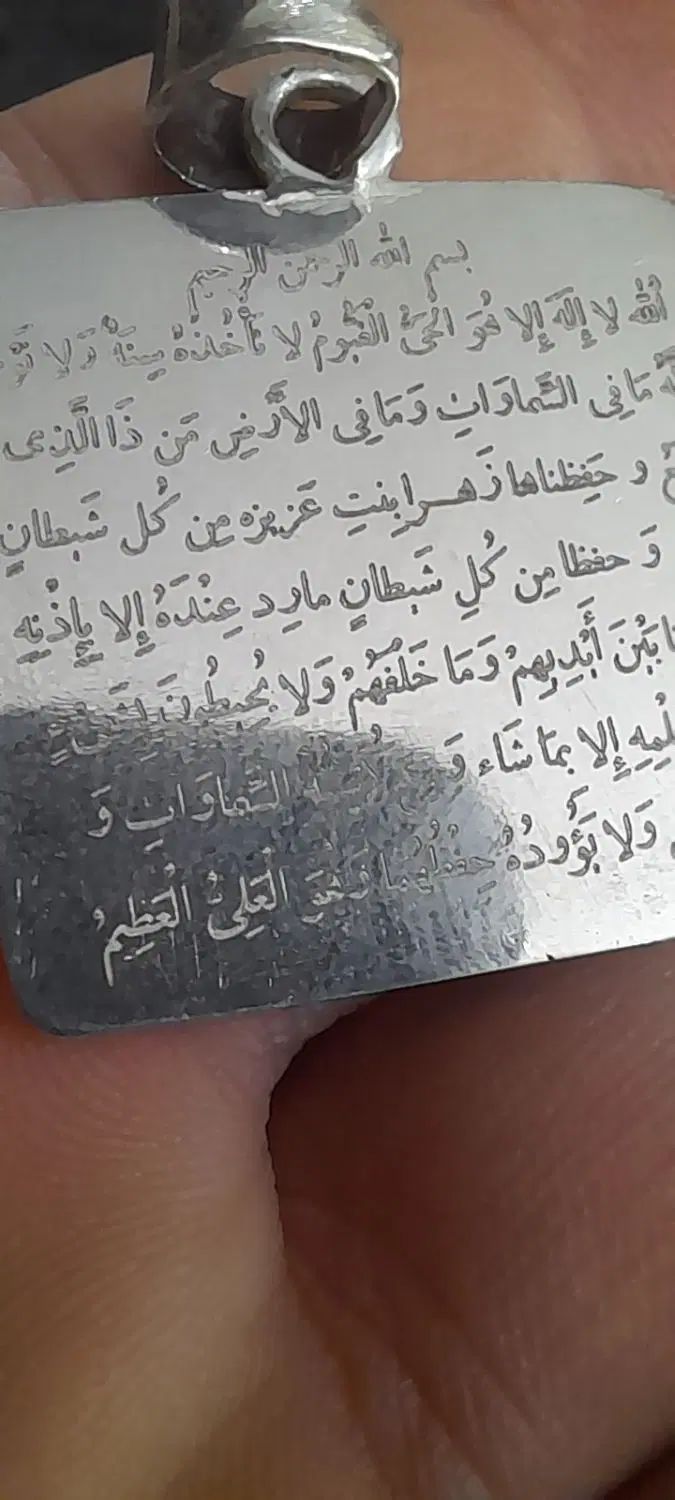 بسم الله الرحمن الرحيم
اَللهُ لا إِلَهَ إِلا هُوَ الْحَىُّ الْقَيُّومُ لا تَأْخُذُهُ سِنَةٌ وَلا
مَا فِى السَّمَاوَاتِ وَمَا فِى الأَرْضِ مَن ذَا الَّذِى
و حَفِظناها زَهـرا بِنتِ عَزیزه مِن كُل شَيطانٍ
وَ حفظا مِن كُلِ شَيطانٍ مارِد عِنْدَهُ إِلا بِإِذْنِهِ
بَيْنَ أَيْدِيهِمْ وَمَا خَلْفَهُمْ وَلا يُحِيطُونَ
إِلا بِمَا شَاء السَّمَاوَاتِ وَ
وَلا يَؤُودُهُ حِفْظُهُمَا وَهُوَ الْعَلِىُّ الْعَظِيمُ